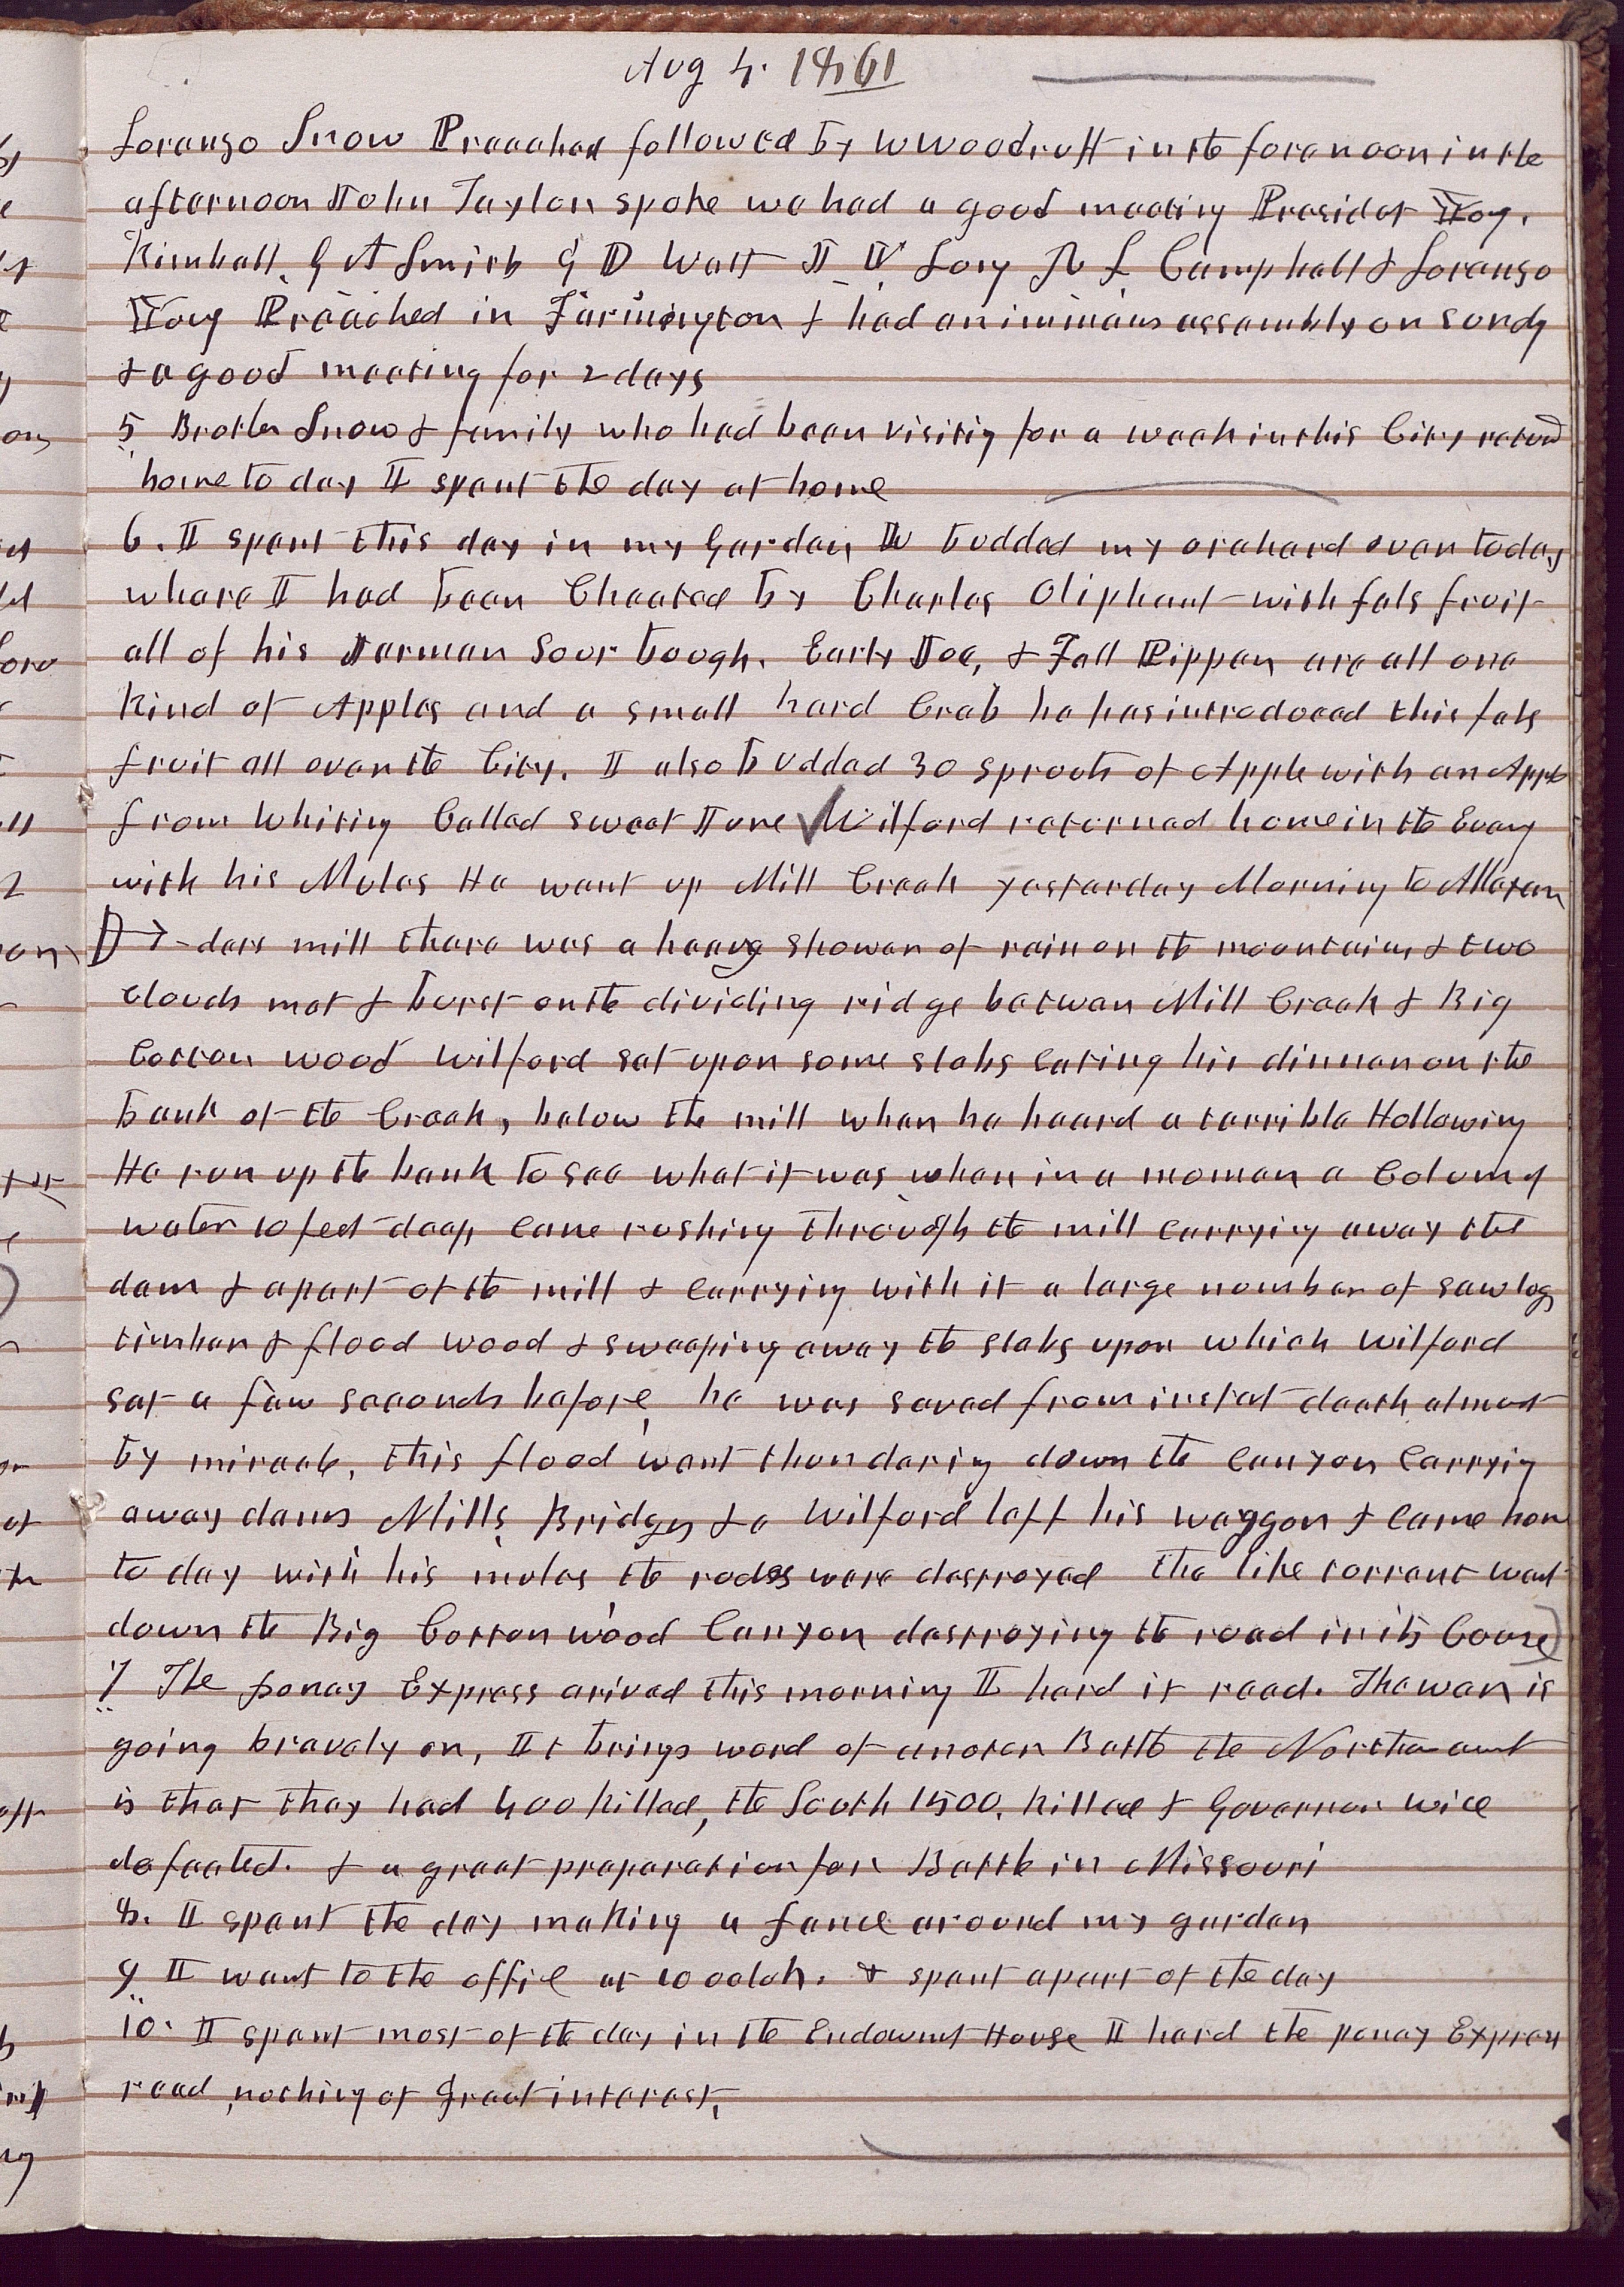 Aug 4. 1861
Lorenzo Snow Preached followed by W Woodruff in the forenoon in the
afternoon John Taylor spoke we had a good meeting Presidet Young.
Kimball, G A Smith G D Watt J V Long R L Campbell & Lorenzo
Young Preached in Farmington & had an immens assembly on Sundy
& a good meeting for 2 days
5 Brother Snow & family who had been visitig for a week in this City returnd
home to day I spent the day at home
6. I spent this day in my Garden I budded my orchard over today
where I had been Cheated by Charles Oliphant with fals fruit
all of his German Sour bough, Early Joe, & Fall Pippen are all one
kind of Apples and a small hard Crab he has introduced this fals
fruit all over the City. I also budded 30 sprouts of Apple with an Apple
from Whiting Called sweet June Wilford returned home in the Eveng
with his Mules He went up Mill Creek yesterday Morning to Allexan
-ders mill there was a heavy shower of rain on the mountains & two
clouds met & burst on the dividing ridge betwen Mill Creek & Big
Cotton wood Wilford sat upon some slabs eating his dinner on the
bank of the Creek, below the mill when he heard a terrible Hollowing
He run up the bank to see what it was when in a momen a Colum of
water 10 feet deep came rushing through the mill carrying away the
dam & a part of the mill & carrying with it a large number of saw logs
timber & flood wood & sweeping away the slabs upon which Wilford
sat a few seconds before, he was saved from instat death almost
by miracle, this flood went thundering down the canyon Carryig
away dams Mills, Bridges &c Wilford left his waggon & came home
to day with his mules the rodes were destroyed the like torrent went
down the Big Cotton wood Canyon destroying the road in its Course
7 The poney Express arived this morning I hard it read. The war is
going bravely on, It brings word of another Battle the North account
is that they had 400 killed, the South 1500. killed & Governor wise
defeated. & a great preparation for Battle in Missouri
8. I spent the day making a fance around my garden
9 I went to the office at 10 oclok. & spent a part of the day
10. I spent most of the day in the Endowmt House I hard the poney Express
read, nothing of great interest,